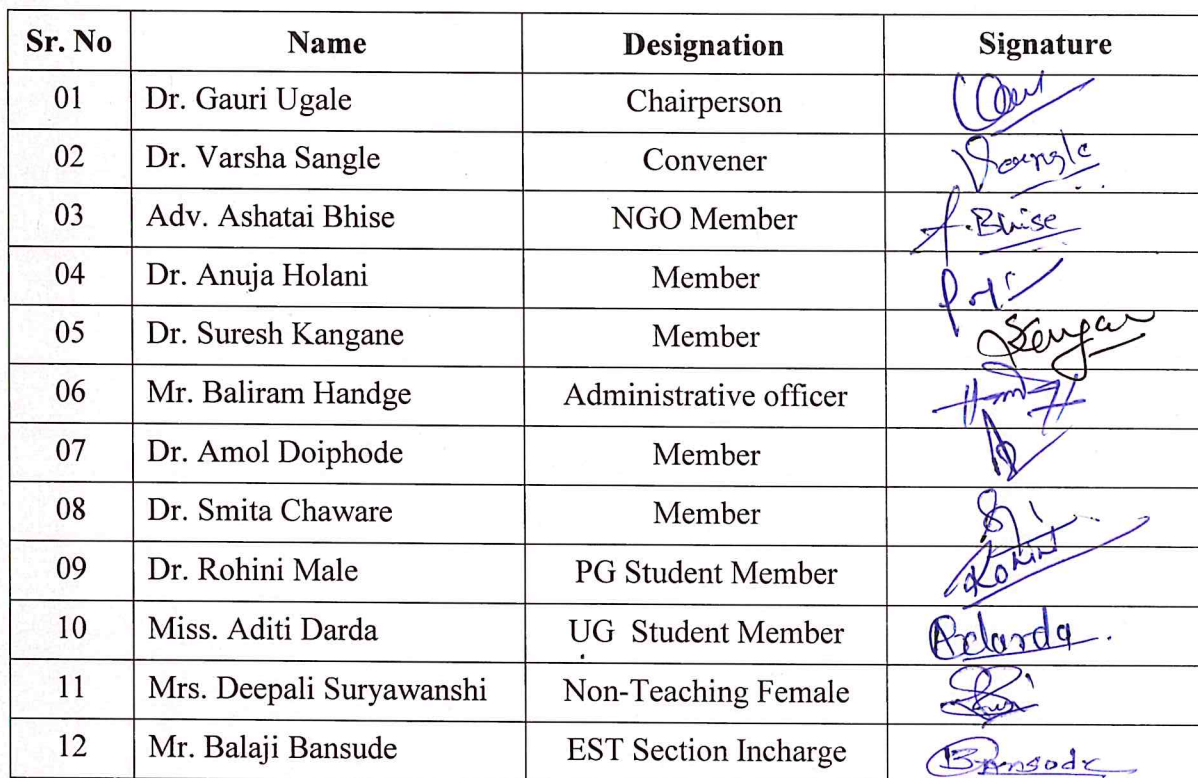 Sr. No Name Designation Signature
01 Dr. Gauri Ugale Chairperson
02 Dr. Varsha Sangle Convener VSangle
03 Adv. Ashatai Bhise NGO Member A.Bhise
04 Dr. Anuja Holani Member
05 Dr. Suresh Kangane Member
06 Mr. Baliram Handge Administrative officer
07 Dr. Amol Doiphode Member
08 Dr. Smita Chaware Member
09 Dr. Rohini Male PG Student Member Rohini
10 Miss. Aditi Darda UG Student Member Adarda.
11 Mrs. Deepali Suryawanshi Non-Teaching Female
12 Mr. Balaji Bansude EST Section Incharge Bansode